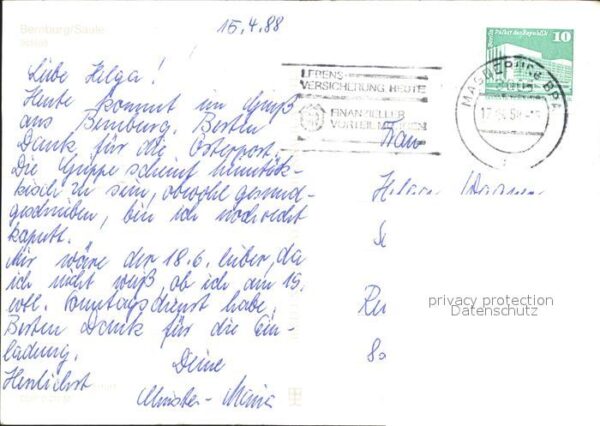 15.4.88
Bernburg/Saale
Schloß
Liebe Helga!
Heute kommt im Gruß
aus Bernburg. Besten
Dank für die Osterpost.
Die Grippe scheint heimtük-
kisch zu sein, obwohl gesund-
geschrieben, bin ich noch recht
kaputt.
Mir wäre der 18.6. lieber, da
ich nicht weiß, ob ich am 19.
evtl. Sonntagsdienst habe.
Besten Dank für die Ein-
ladung.
Deine
Herzlichst
Maria
LEBENS-
VERSICHERUNG HEUTE
FINANZIELLER
VORTEIL MORGEN
MAGDEBURG BPA
Palast der Republik
Berlin
10
DDR
Frau
privacy protection
Datenschutz